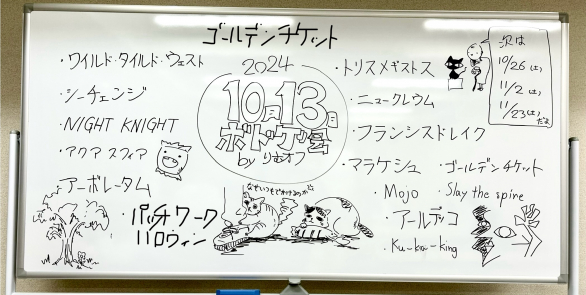 ゴールデンチケット
・ワイルド・タイルド・ウエスト
シーチェンジ
・NIGHT KNIGHT
・アクアスフィア
アーボレータム
・パッチワーク
ハロウィン
2024
10月13日
ボドゲ会
by りむオフ
なぜいつもでかけるのか
・トリスメギストス
・ニュークレウム
・フランシスドレイク
・マラケシュ
・ゴールデンチケット
・Mojo
・Slay the spine
・アールデコ
・Ku-ka-king
次は
10/26(土)
11/2(土)
11/23(土)
だよ